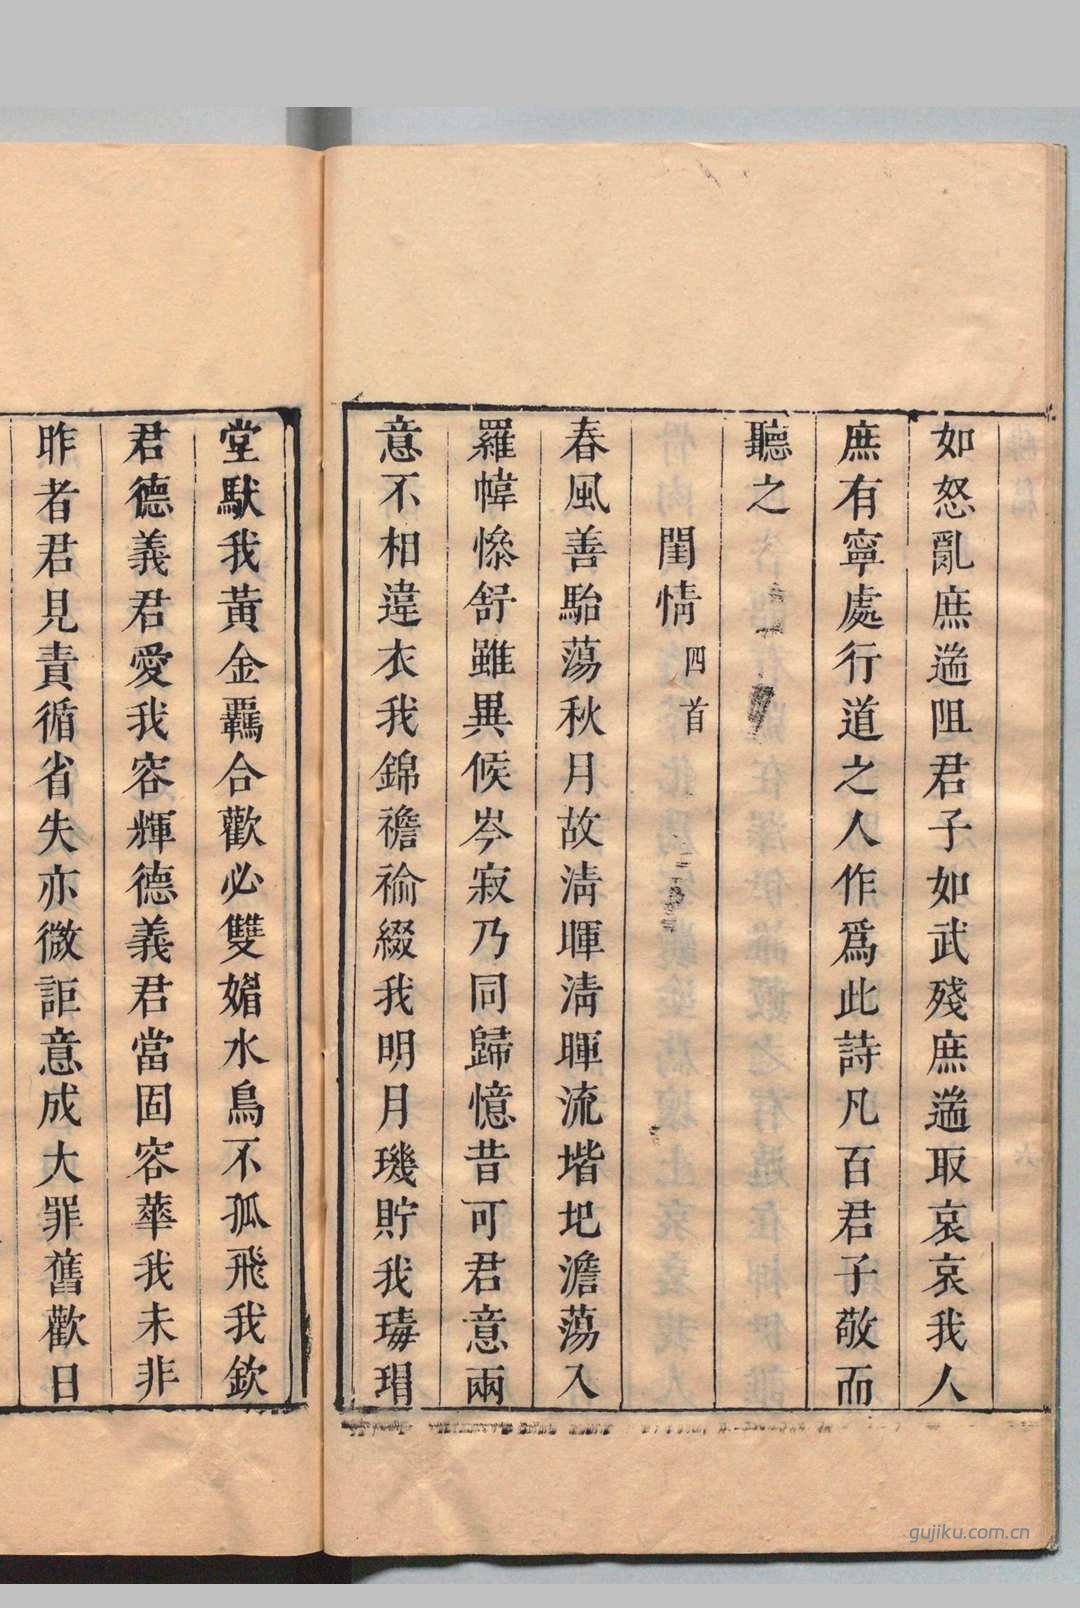 如怒亂庶遄阻君子如武殘庶遄取哀哀我人
庶有寧處行道之人作爲此詩凡百君子敬而
聽之
閨情 四首
春風善駘蕩秋月故淸暉淸暉流堦圯澹蕩入
羅幃慘舒雖異候岑寂乃同歸憶昔可君意兩
意不相違衣我錦襜褕綴我明月璣貯我瑇瑁
堂馱我黃金羈合歡必雙媚水鳥不孤飛我欽
君德義君愛我容輝德義君當固容華我未非
昨者君見責循省失亦微詎意成大罪舊歡日
gujiku.com.cn